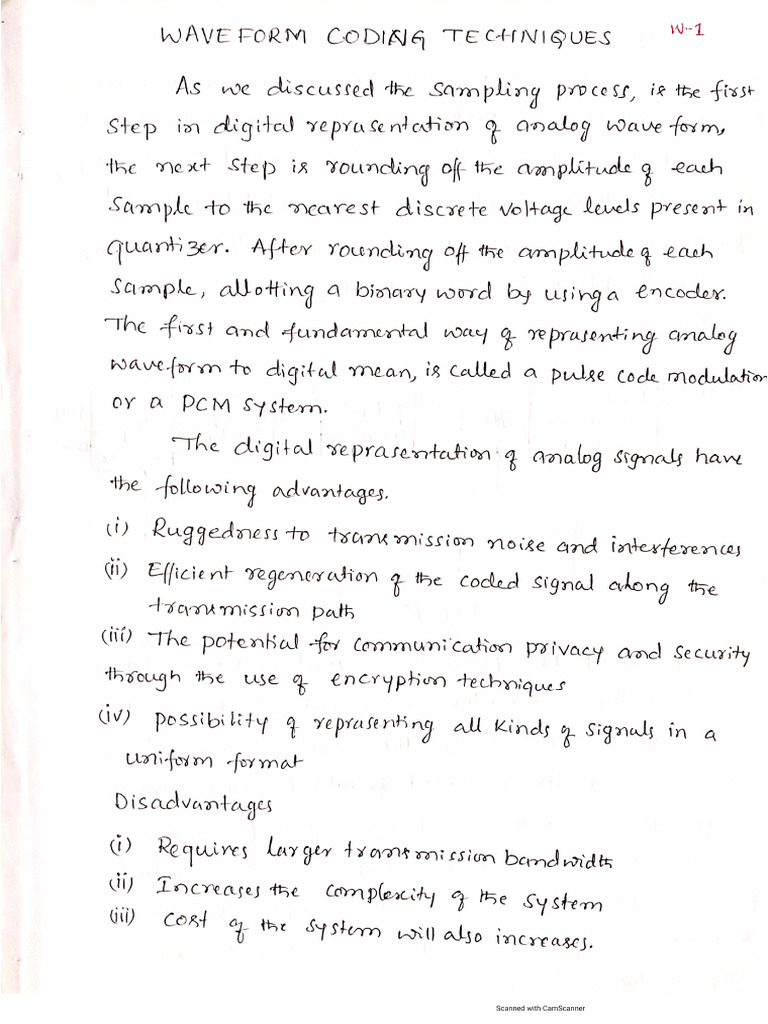 WAVEFORM CODING TECHNIQUES W-1
As we discussed the sampling process, is the first
step in digital reprasentation of analog wave form,
the next step is rounding off the amplitude of each
sample to the nearest discrete voltage levels present in
quantizer. After rounding off the amplitude of each
sample, allotting a binary word by using a encoder.
The first and fundamental way of reprasenting analog
waveform to digital mean, is called a pulse code modulation
or a PCM system.
The digital reprasentation of analog signals have
the following advantages.
(i) Ruggedness to transmission noise and interferences
(ii) Efficient regeneration of the coded signal along the
transmission path
(iii) The potential for communication privacy and security
through the use of encryption techniques
(iv) possibility of reprasenting all kinds of signals in a
uniform format
Disadvantages
(i) Requires larger transmission bandwidth
(ii) Increases the complexity of the system
(iii) cost of the system will also increases.
Scanned with CamScanner